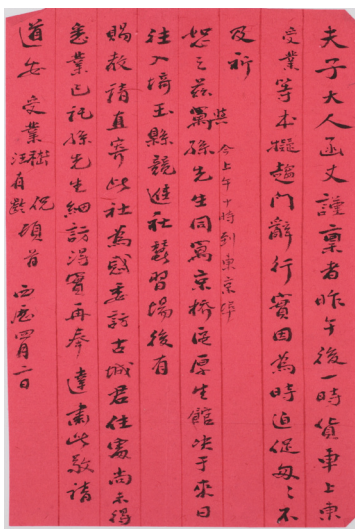 夫子大人函丈謹稟者昨午後一時貨車上東
受業等本擬趨門辭行實因為時迫促匆々不
及祈
恕之茲 今上午十時到東京驛 偕孫先生同寓京橋區厚生館决于來日
往入埼玉縣競進社蠶習場後有
賜教請直寄此社為感委訪古城君住處尚未得
悉業已託孫先生細訪得實再奉達肅此敬請
道安 受業 嵇侃 汪有齡 頓首 西曆四月二日